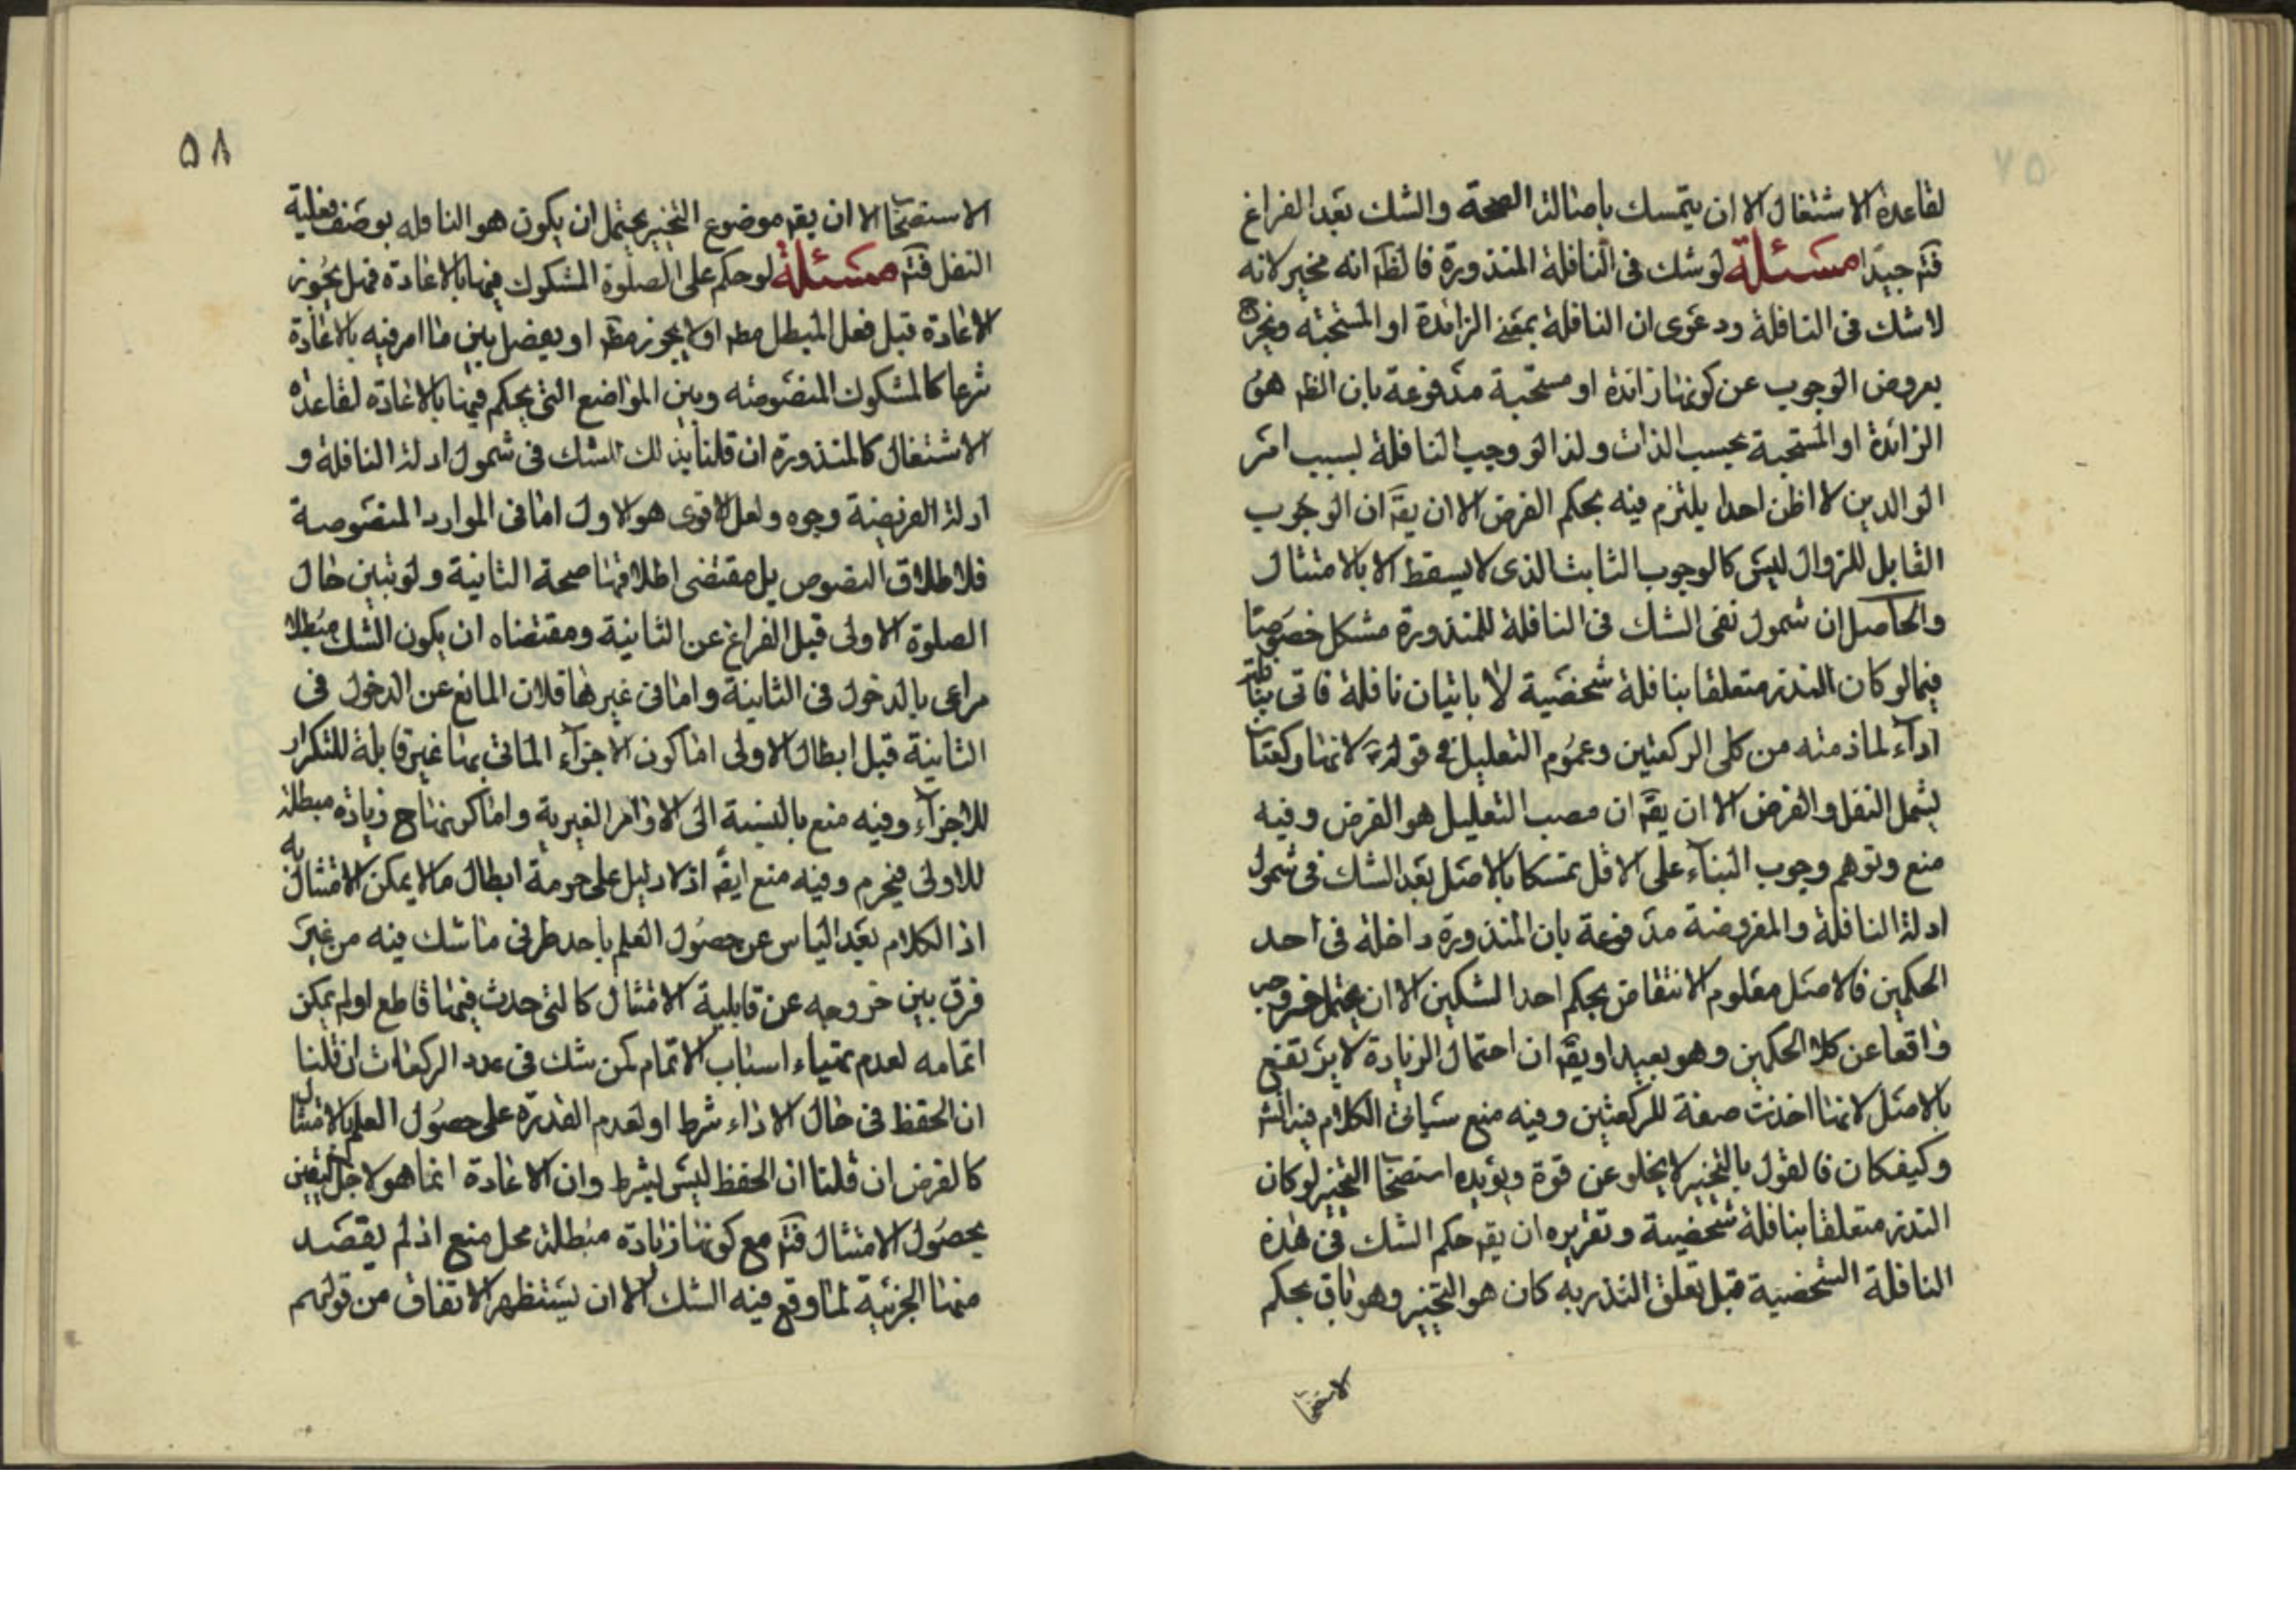 لقاعدة الاشتغال الا ان يتمسك باصالة الصحة والشك بعد الفراغ
فتم جيدا مسئلة لو شك فى النافلة المنذورة فالظم انه مخير لانه
لا شك فى النافلة ودعوى ان النافلة بمعنى الزائدة او المستحبة
بعروض الوجوب عن كونها زائدة او مستحبة مدفوعة بان الظم هو
الزائدة او المستحبة بحسب الذات ولذا لو وجب النافلة بسبب امر
الوالدين لا اظن احدا يلتزم فيه بحكم الفرض الا ان يقم ان الوجوب
القابل للزوال ليس كالوجوب الثابت الذى لا يسقط الا بالامتثال
والحاصل ان شمول نفى الشك فى النافلة للمنذورة مشكل خصوصا
فيما لو كان النذر متعلقا بنافلة شخصية لا باتيان نافلة فاتى بنافلة
اداء لما ذمته من كلى الركعتين وعموم التعليل فى قوله لانها ركعتان
يشمل النفل والفرض الا ان يقم ان مصب التعليل هو الفرض وفيه
منع وتوهم وجوب البناء على الاقل تمسكا بالاصل بعد الشك فى شمول
ادلة النافلة والمفروضة مدفوعة بان المنذورة داخلة فى احد
الحكمين فالاصل معلوم الانتقاض بحكم احد الشكين الا ان يحتمل خروجه
واقعا عن كلا الحكمين وهو بعيد او يقم ان احتمال الزيادة لا يرتفع
بالاصل لانها اخذت صفة للركعتين وفيه منع سياتى الكلام فيه انش
وكيفكان فالقول بالتخيير لا يخلو عن قوة ويؤيده استصحاب التخيير لو كان
النذر متعلقا بنافلة شخصية وتقريره ان يقم حكم الشك فى هذه
النافلة الشخصية قبل تعلق النذر به كان هو التخيير وهو باق بحكم
الاستصحاب
۵۸
الاستصحاب الا ان يقم موضوع التخيير يحتمل ان يكون هو النافله بوصف فعلية
النفل فتم مسئلة لو حكم على الصلوة المشكوك فيها بالاعادة فهل يجوز
الاعادة قبل فعل المبطل مطم او لا يجوز مطم او يفصل بين ما امر فيه بالاعادة
شرعا كالمشكوك المنصوصه وبين المواضع التى يحكم فيها بالاعادة لقاعدة
الاشتغال كالمنذورة ان قلنا بذلك للشك فى شمول ادلة النافلة و
ادلة الفريضة وجوه ولعل الاقوى هو الاول اما فى الموارد المنصوصة
فلاطلاق النصوص بل مقتضى اطلاقها صحة الثانية ولو تبين حال
الصلوة الاولى قبل الفراغ عن الثانية ومقتضاه ان يكون الشك مبطلا
مراعى بالدخول فى الثانية واما فى غيرها فلان المانع عن الدخول فى
الثانية قبل ابطال الاولى اما كون الاجزاء الماتى بها غير قابلة للتكرار
للاجزاء وفيه منع بالنسبة الى الاوامر الغيرية واما كونها ح زيادة مبطلة
للاولى فيحرم وفيه منع ايضم اذ لا دليل على حرمة ابطال ما لا يمكن الامتثال به
اذ الكلام بعد الياس عن حصول العلم باحد طرفى ما شك فيه من غير
فرق بين خروجه عن قابلية الامتثال كالتى حدث فيها قاطع او لم يمكن
اتمامه لعدم تهياء اسباب الاتمام كمن شك فى عدد الركعات ان قلنا
ان الحفظ فى حال الاداء شرط او لعدم القدرة على حصول العلم بالامتثال
كالفرض ان قلنا ان الحفظ ليس بشرط وان الاعادة انما هو لاجل اليقين
بحصول الامتثال فتم مع كونها زيادة مبطلة محل منع اذ لم يقصد
منها الجزئية لما وقع فيه الشك الا ان يستظهر الاتفاق من قولهم